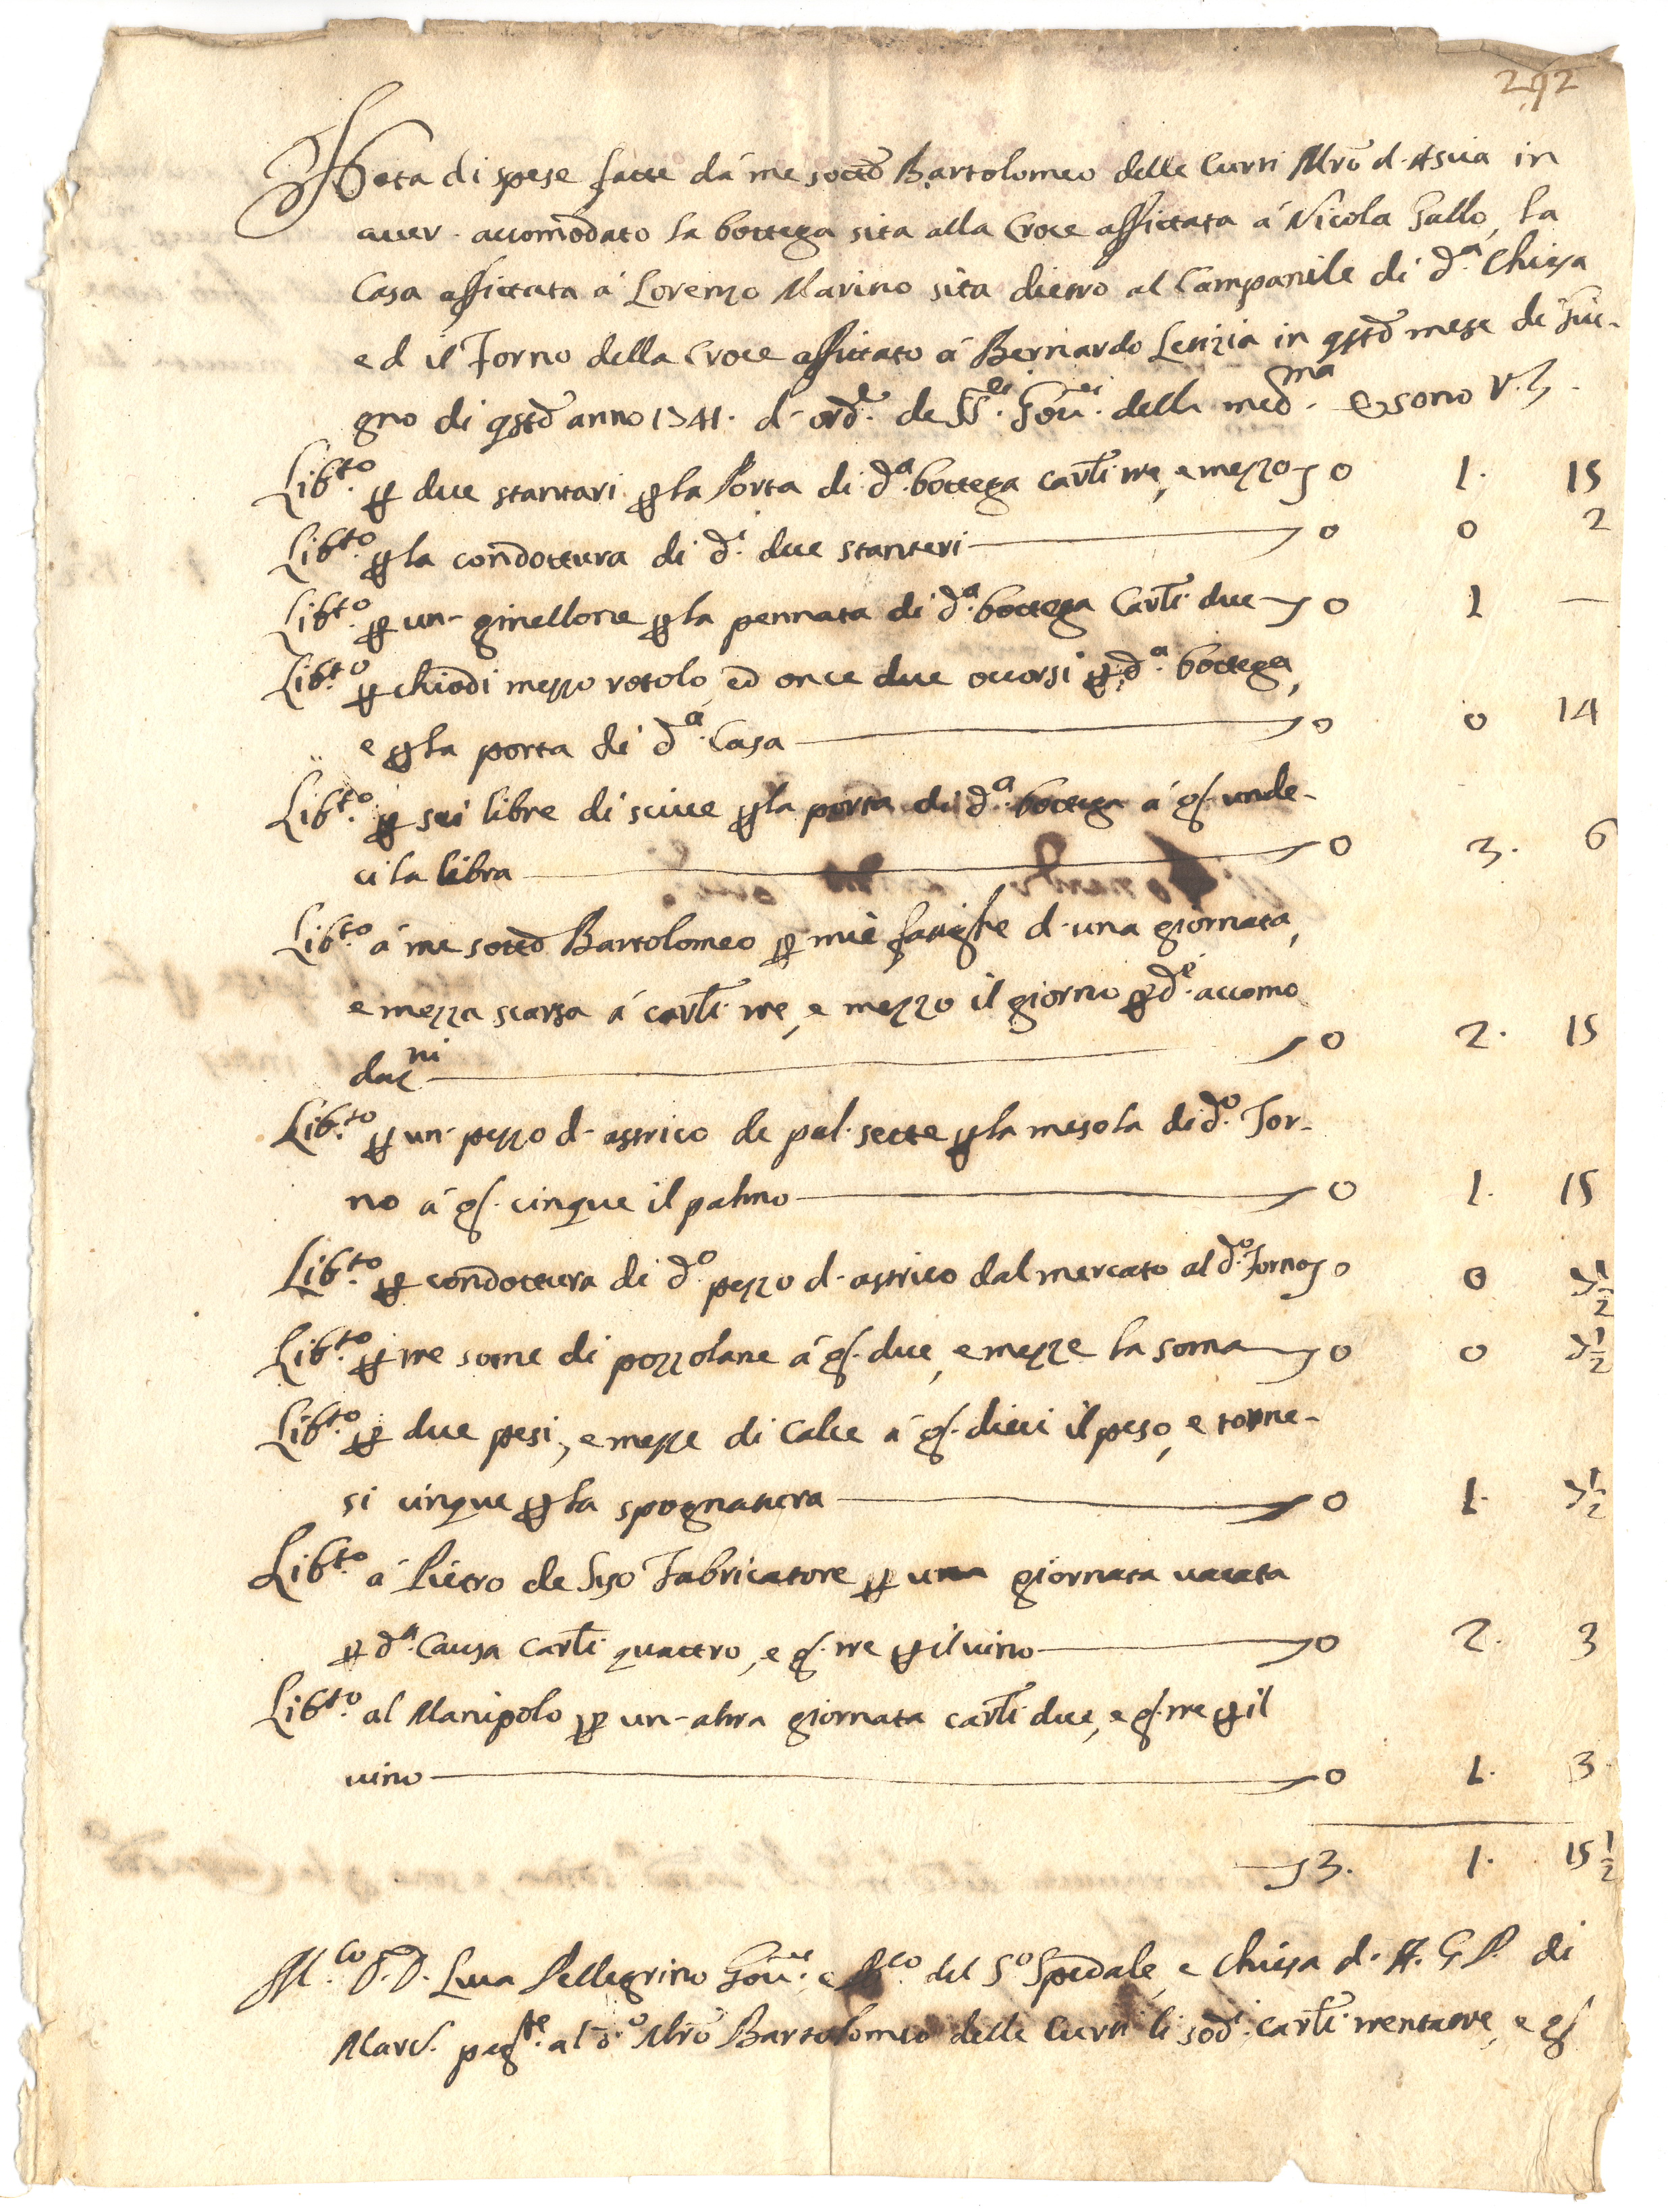 292
Nota di spese fatte dà me sotto Bartolomeo delle Curti Mro d-Ascia in
aver accomodato la bottega sita alla Croce affittata à Nicola Gallo, la
Casa affittata à Lorenzo Marino sita dietro al Campanile di d.a Chiesa
ed il Forno della Croce affittato à Bernardo Lenzia in qsto mese di Giu-
gno di qsto anno 1741. d-ord.e de SS.ri Gov.ri della med.ma e sono V.Z.
Lib.to p due stantari p la Porta di d.a bottega carli tre, e mezzo 0 1. 15
Lib.to p la condottura di d.i due stanteri 0 0 2
Lib.to p un-ginellone p la pennata di d.a bottega Carli due 0 1 —
Lib.to p chiodi mezzo rotolo, ed once due occorsi p d.a bottega,
e p la porta di d.a Casa 0 0 14
Lib.to p sei libre di scive p la porta di d.a bottega à g. unde-
ci la libra 0 3. 6
Lib.to à me sotto Bartolomeo p mie fatighe d-una giornata,
e mezza scarsa à carli tre, e mezzo il giorno p d.e accomo
daz.ni 0 2. 15
Lib.to p un-pezzo d-astrico de pal. sette p la mesola di d.o For-
no à g. cinque il palmo 0 1. 15
Lib.to p condottura di d.o pezzo d-astrico dal mercato al d.o Forno 0 0 7½
Lib.to p tre some di pozzolane à g. due, e mezze la soma 0 0 7½
Lib.to p due pesi, e mezze di Calce à g. dieci il peso, e torne-
si cinque p la spognatura 0 1. 7½
Lib.to à Pietro de Siso Fabricatore p una giornata vacata
p d.a Causa carli quattro, e g. tre p il vino 0 2. 3
Lib.to al Manipolo p un-altra giornata carli due, e g. tre p il
vino 0 1. 3
3. 1. 15½
M.co D.D. Luca Pellegrino Gov.re e del S.o Spedale, e Chiesa d. A. G. P. di
Marc. pag.te al d.o Mro Bartolomeo delle Curti li sod.i carli trentatre, e g